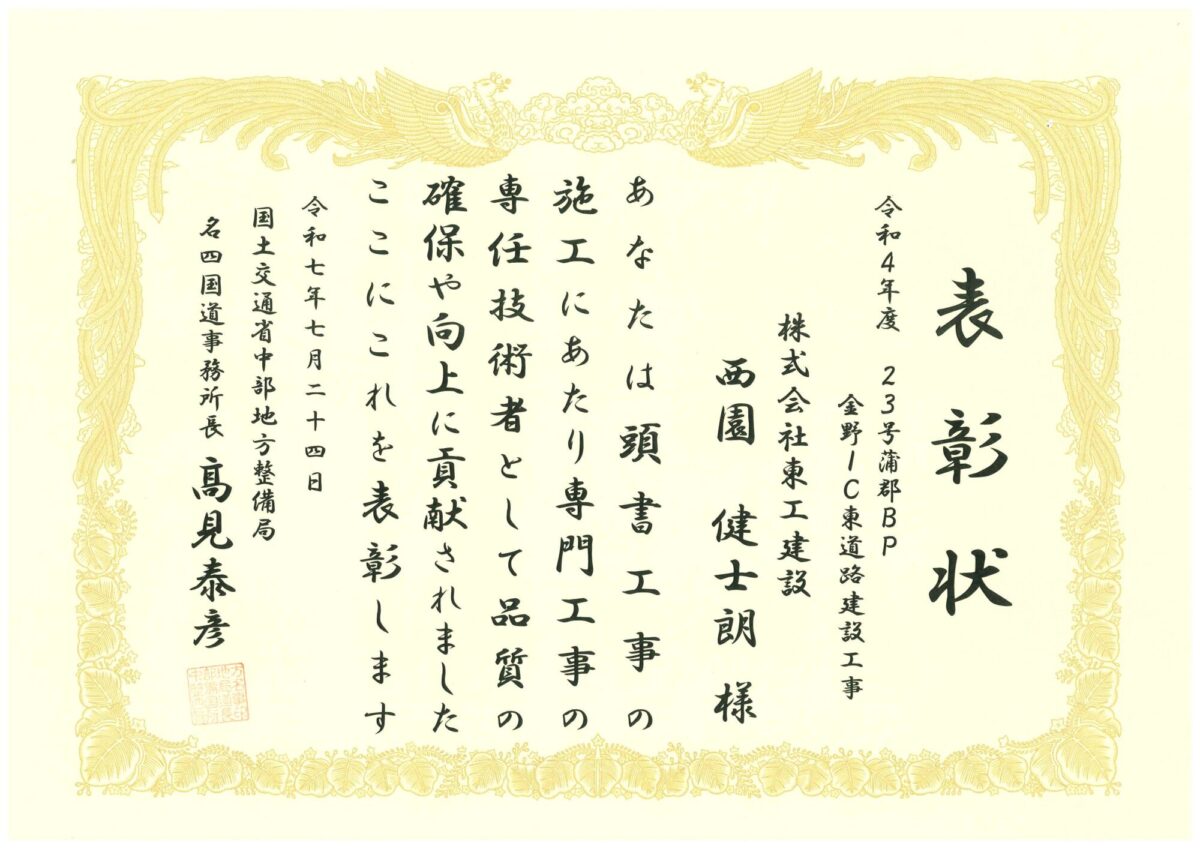 表彰状
令和4年度 23号蒲郡BP
金野IC東道路建設工事
株式会社東工建設
西園 健士朗 様
あなたは頭書工事の
施工にあたり専門工事の
専任技術者として品質の
確保や向上に貢献されました
ここにこれを表彰します
令和七年七月二十四日
国土交通省中部地方整備局
名四国道事務所長 髙見泰彦